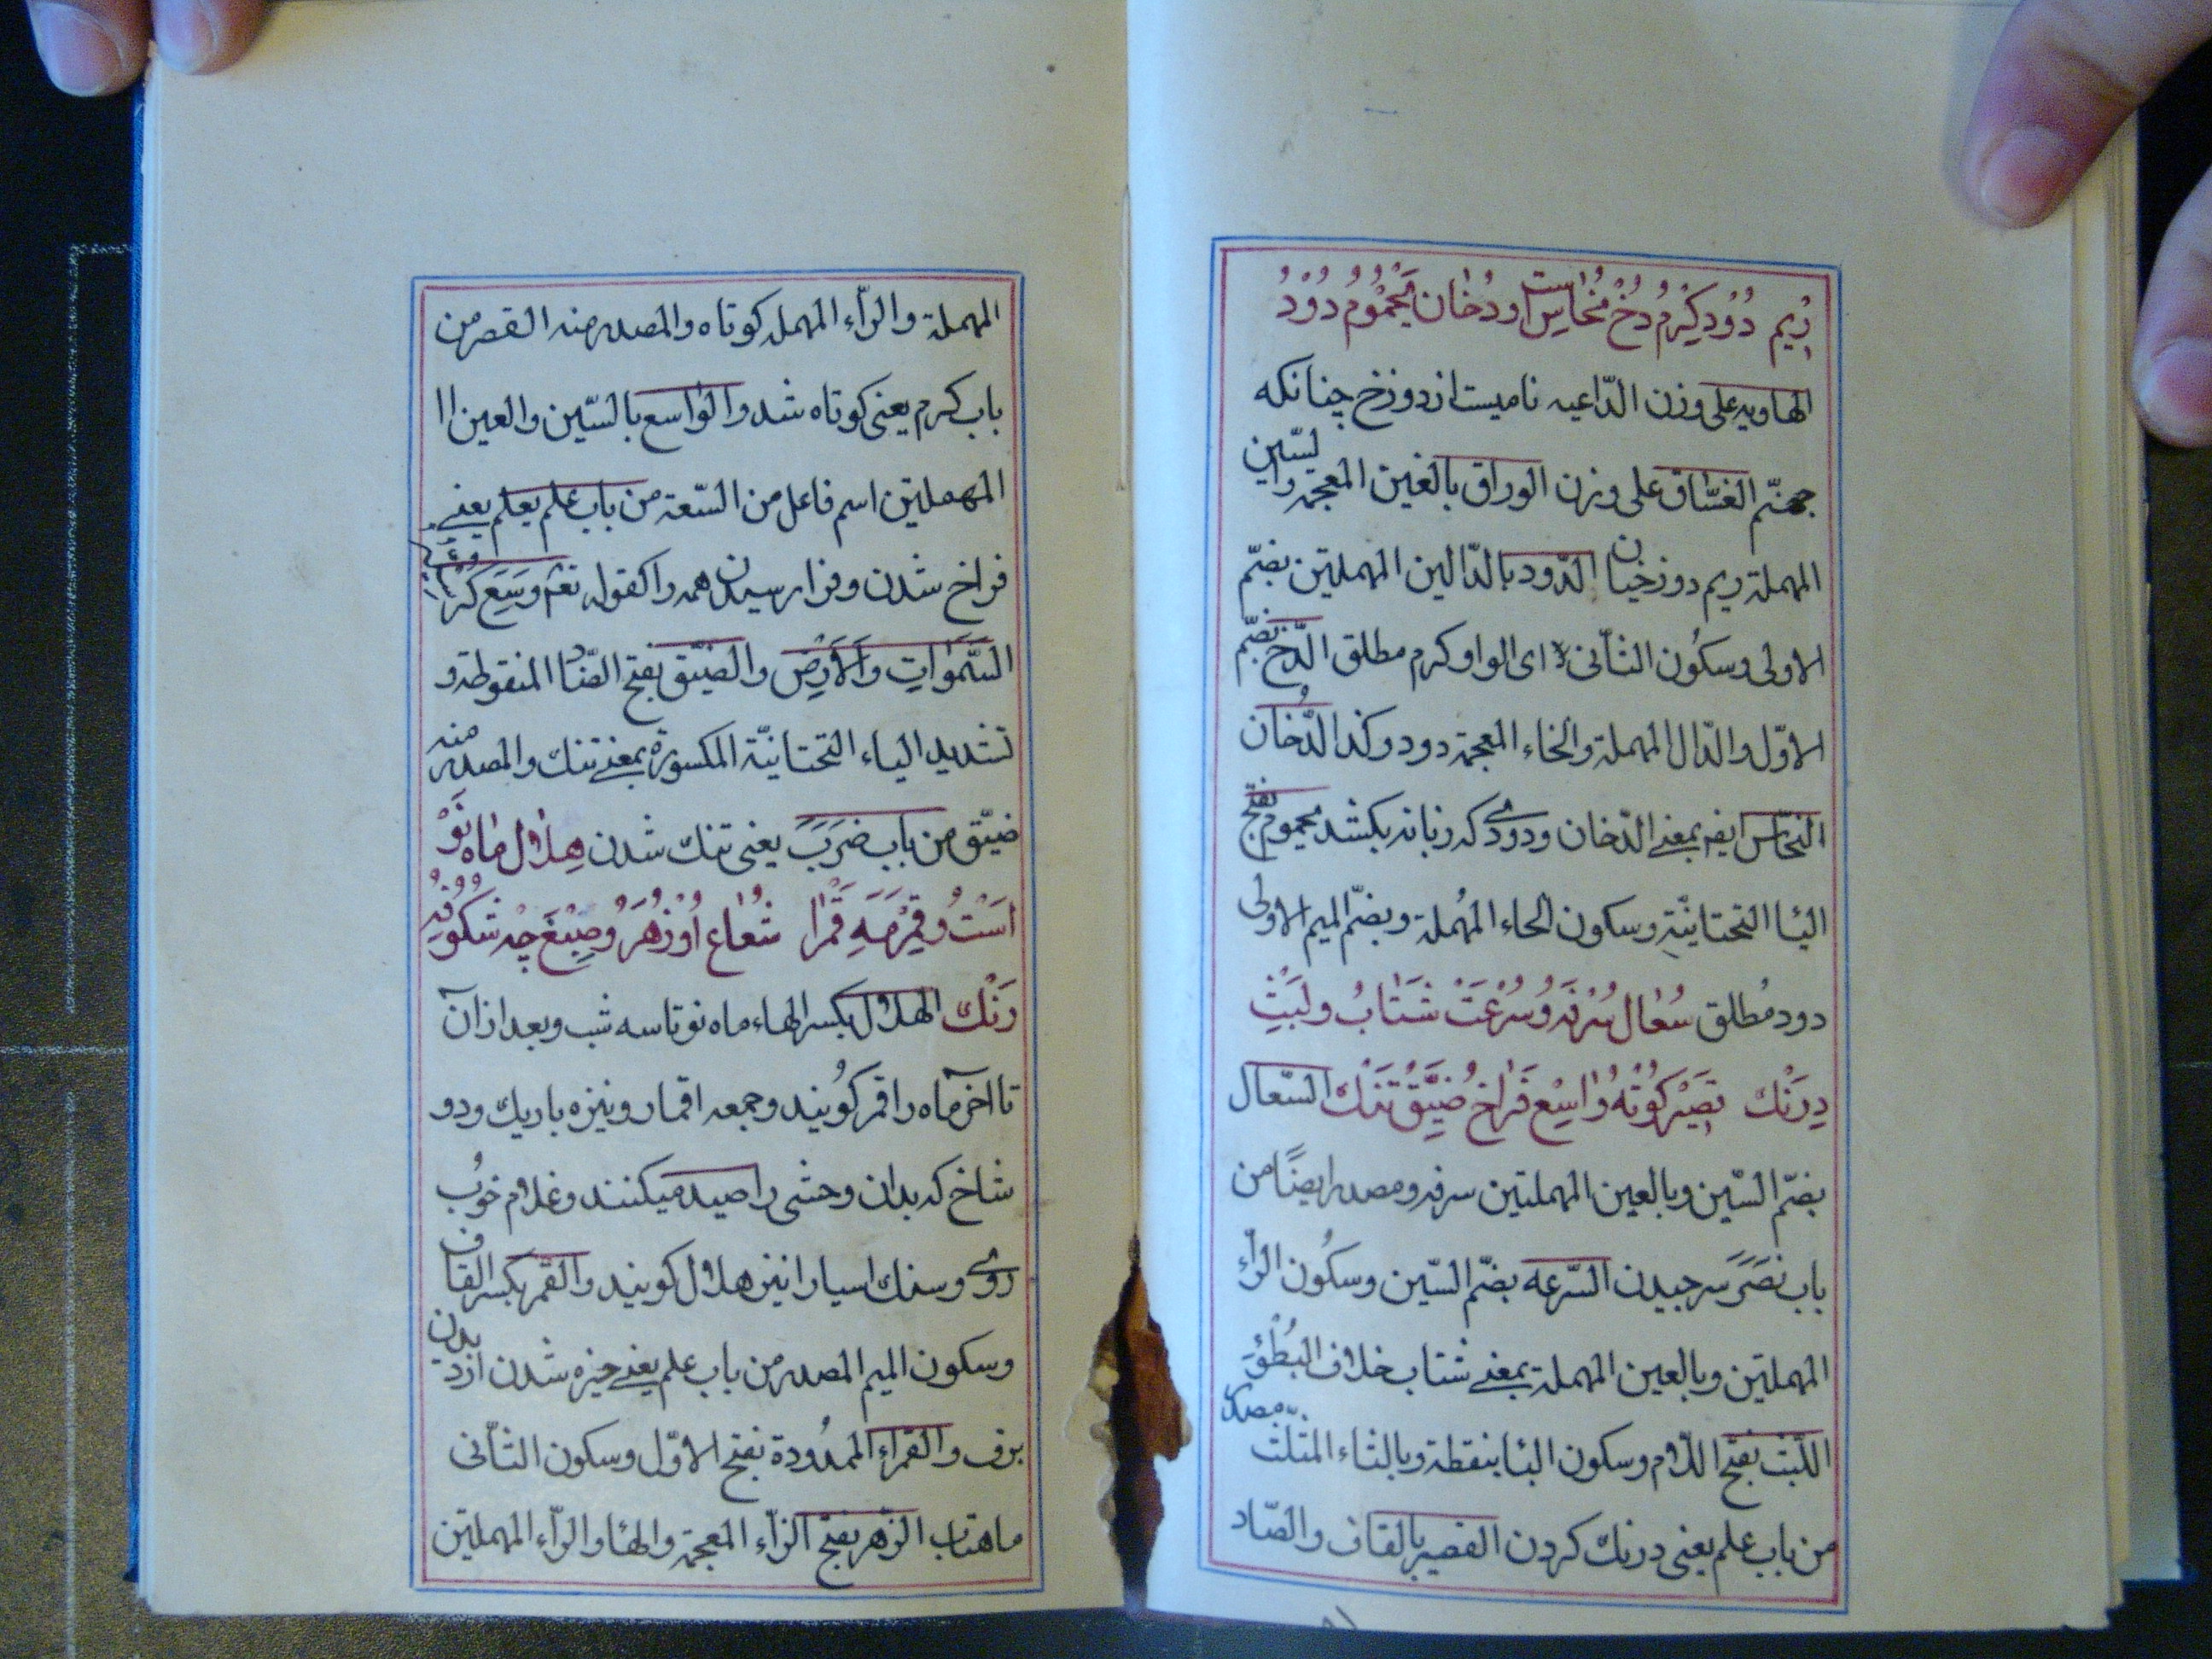 ریم دُوْد كِرْم دُخْ نُحاس است و دُخان یَحْمُوم دُوْدْ
الهاویه علی وزن الدّاعیه نامیست از دوزخ چنانکه
جهنّم الغسّاق علی وزن الوراق بالغین المعجمة والسّین
المهملة ریم دوزخیان الدّود بالدّالین المهملتین بضمّ
الاولی وسكُون الثّانی ای الواو کرم مطلق الدّخ بضمّ
الاوّل والدّال المهملة والخاء المعجمة دود وکذا الدُّخان
النحّاس ایضا بمعنی الدّخان ودودی که زبانه بکشد یحموم بفتح
الیا التحتانیّة وسکون الحاء المهُملة وبضمّ المیم الاولی
دود مُطلق سُعٰال سُرْفَه وُ سُرْعَتْ شَتٰابُ ولَبَثِ
دِرَنْك قَصیْر كُوْتَهُ وٰاسِعْ فَرٰاخُ ضَیِّقْ تَنْك السّعال
بضمّ السّین وبالعین المهملتین سرفه ومصدر ایضًا من
باب نَصَرَ سرجیدن السّرعة بضمّ السّین وسكُون الرّاء
المهملتین وبالعین المهملة بمعنی شتاب خلاف البُطْؤِ
اللّبث بفتح اللّام وسکون البا بنقطة وبالثاء المثلّث مصدر
من باب علم یعنی درنك کردن القصیر بالقاف والصّاد
المهملة والرّاء المهملة کوتاه والمصدر منه القصر من
باب کرم یعنی کوتاه شد والواسع بالسّین والعین ا
المهملتین اسم فاعل من السّعة من باب علم یعلم یعنی
فراخ شدن وفرا رسیدن همه را کقوله تعم وَسِعَ كُرْسِیُّهُ
السَّمٰوَاتِ وَالْاَرْضَ والضیّق بفتح الضّاد المنقوطة و
تشدید الیاء التحتانیّة المکسورة بمعنی تنك والمصدر منه
ضیّق من باب ضَرَبَ یعنی تنك شدن هِلٰال مٰاه نَوْ
اَسْتُ وُ قِمْر مَه قَمْرٰا شُعٰاع اُوْ زَهْر وُ صِبْغَ چِه شكُوْفه
رَنْك الهلال بکسر الهاء ماه نو تا سه شب وبعد از آن
تا آخر ماه را قمر گویند وجمعه اقمار ونیزه باریك ودو
شاخ که بدان وحشی را صید میکنند وغلام خوُب
روی وسنك اسیا را نیز هلال گویند والقمر بکسر القاف
وسکون المیم المصدر من باب علم یعنی خیره شدن از دیدن
برف والقمراء الممدُودة بفتح الاوّل وسکون الثّانی
ماهتاب الزّهر بفتح الزّاء المعجمة والها والرّاء المهملتین